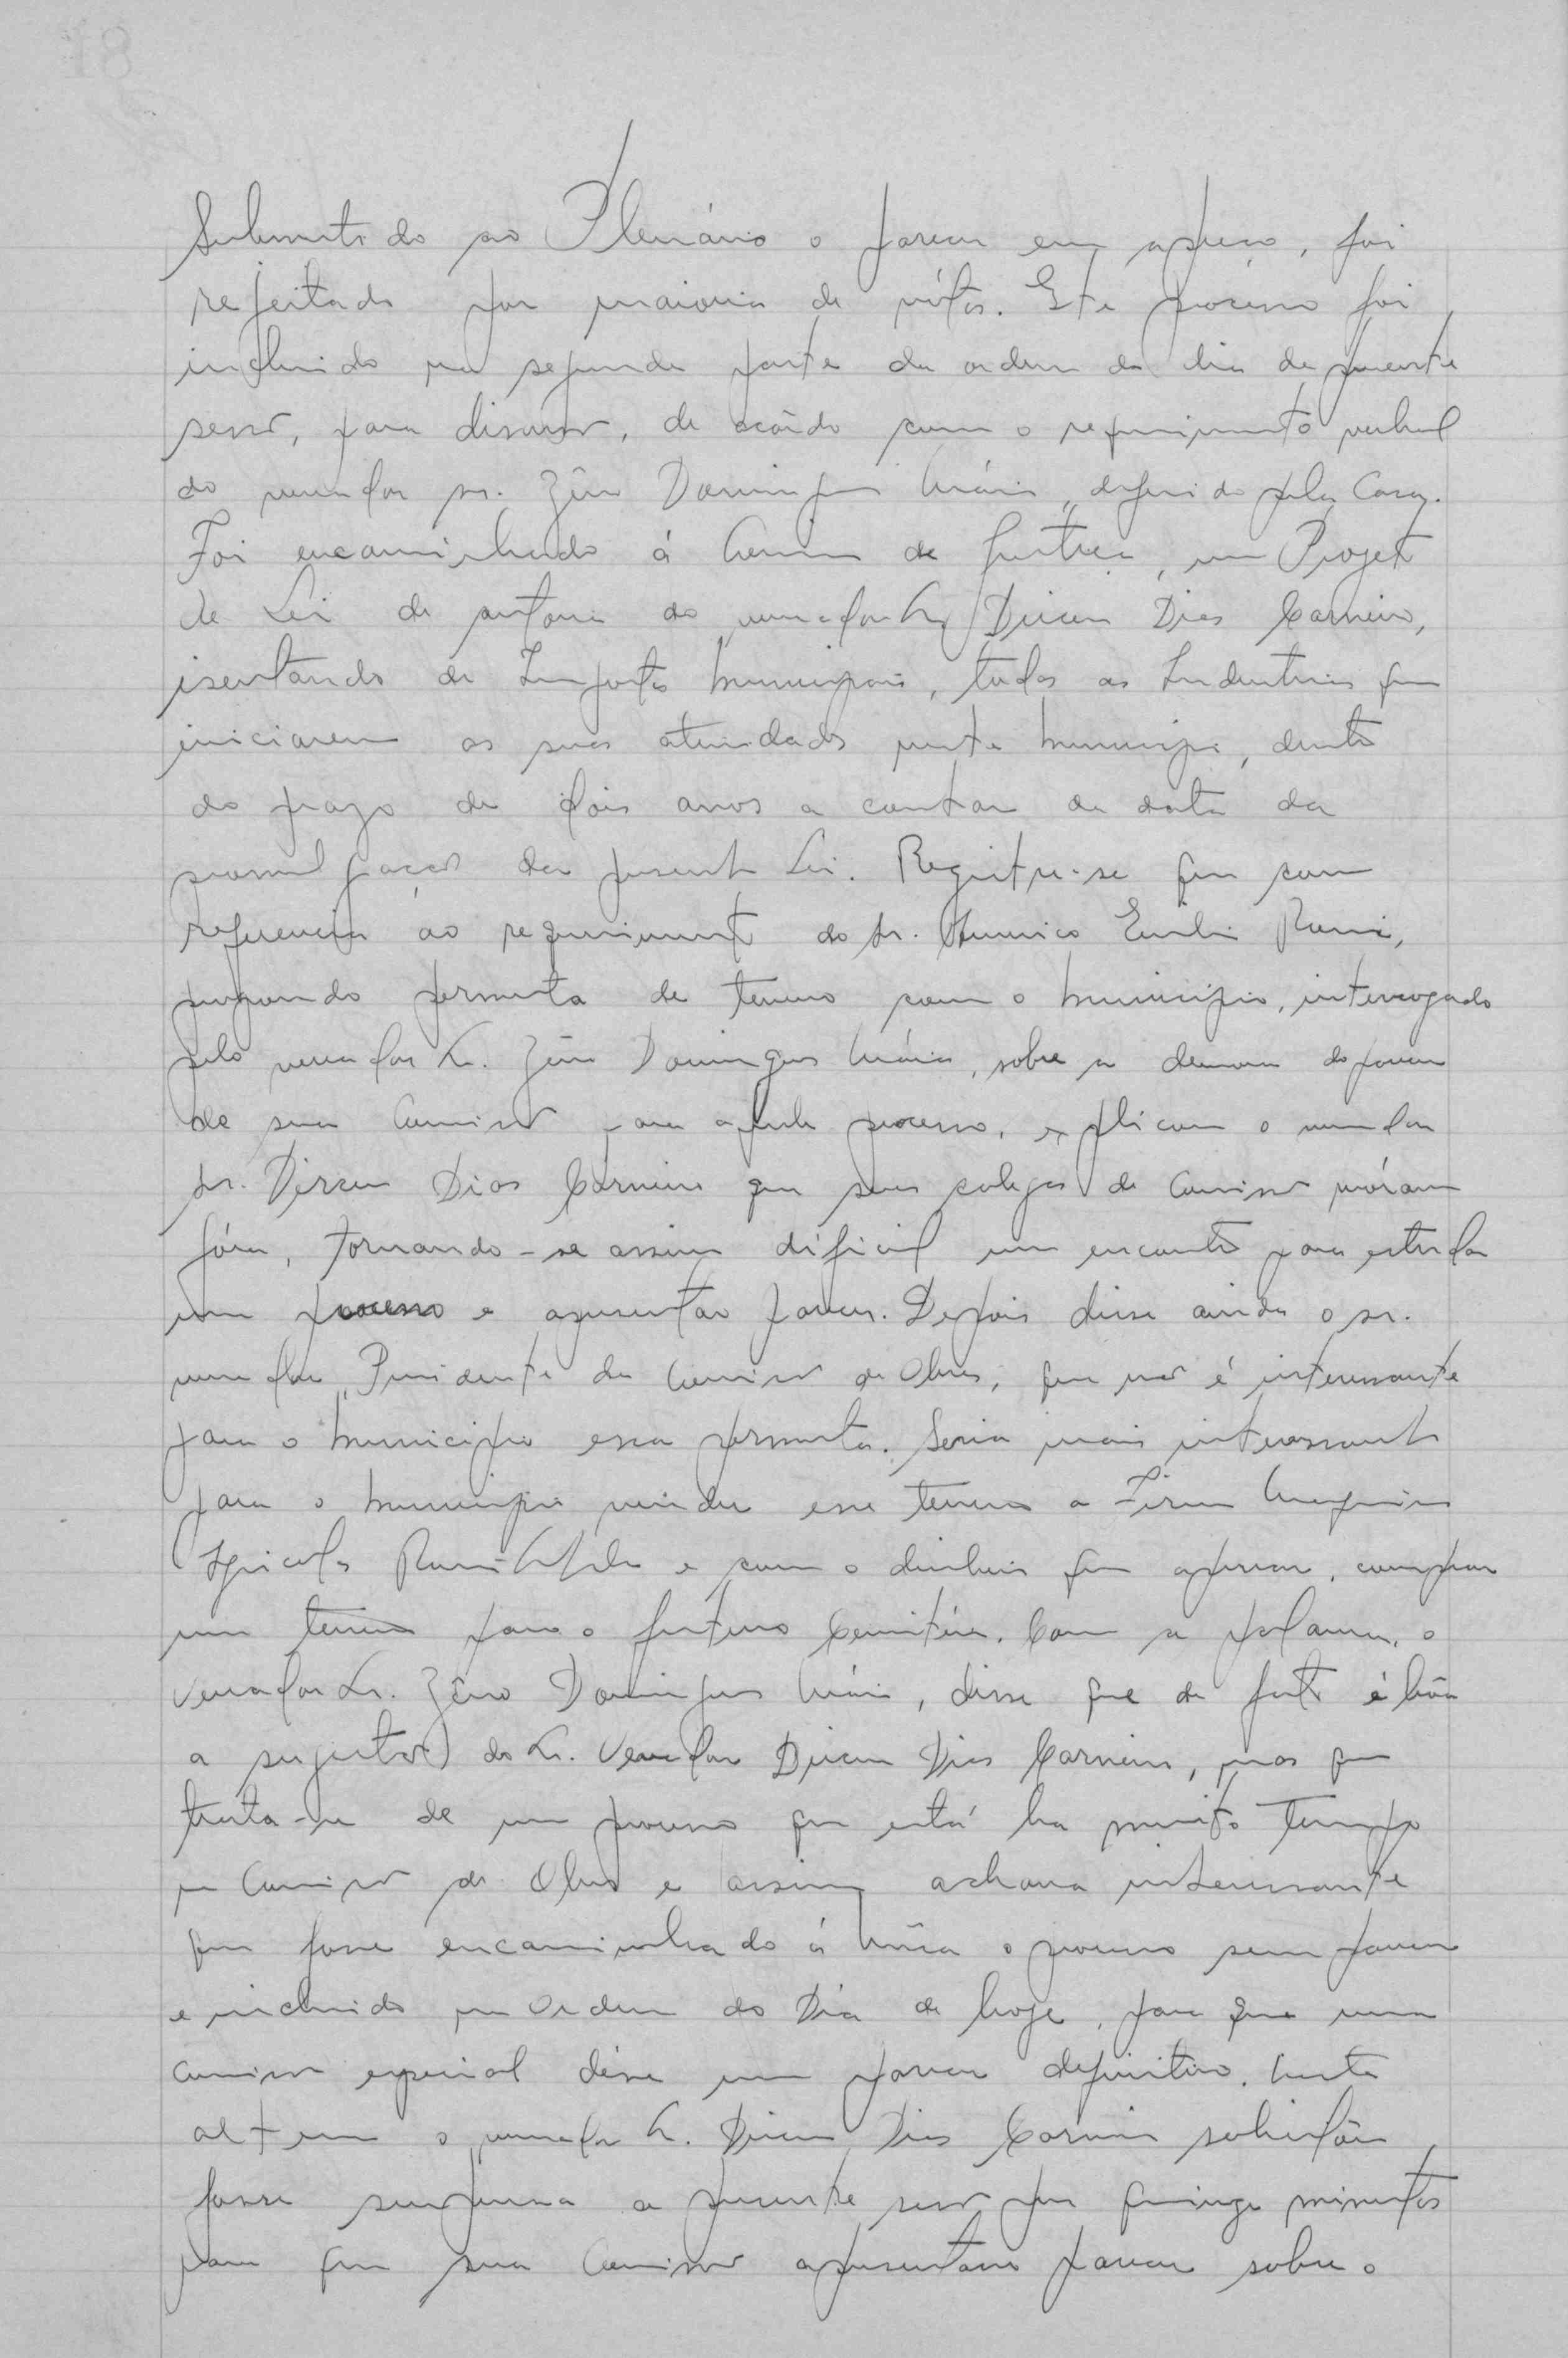 Submetido ao Plenário o parecer em apreço, foi
rejeitado por maioria de vótos. Este processo foi
incluido na segunda parte da ordem do dia da presente
sessão, para discussão, de acôrdo com o requerimento verbal
do vereador sr. Zêno Domingues Mário, deferido pela Casa.
Foi encaminhado á Comissão de Justiça, um Projeto
de Lei de autoria do vereador Sr. Dirceu Dias Carneiro,
isentando de Impostos Municipais, todas as Industrias que
iniciarem as suas atividades neste Municipio, dentro
do prazo de dois anos a contar da data da
promulgação da presente Lei. Registre-se que com
referencia ao requerimento do sr. Americo Emilio Romi,
propondo permuta de terreno com o Municipio, interrogado
pelo vereador Sr. Zêno Domingues Mário, sobre a demora do parecer
de sua Comissão para aquele processo, explicou o vereador
sr. Dirceu Dias Carneiro que seus colegas de Comissão móram
fóra, tornando-se assim dificil um encontro para estudar
um processo e apresentar parecer. Depois disse ainda o sr.
vereador, Presidente da Comissão de Obras, que não é interessante
para o Municipio essa permuta. Seria mais interessante
para o Municipio vender esse terreno a Firma Maquinas
Agricolas Romi Ltda e com o dinheiro que apurar, comprar
um terreno para o futuro Cemitério. Com a palavra, o
Vereador Sr. Zêno Domingues Mário, disse que de fato é bôa
a sugestão do Sr. Vereador Dirceu Dias Carneiro, mas que
trata-se de um processo que está ha muito tempo
na Comissão de Obras e assim achava interessante
que fosse encaminhado á Mêsa o processo sem parecer
e incluido na Ordem do Dia de hoje, para que uma
comissão especial désse um parecer definitivo. Nesta
altura o vereador Sr. Dirceu Dias Carneiro solicitou
fosse suspensa a presente sessão por quinze minutos
para que sua Comissão apresentasse parecer sobre o